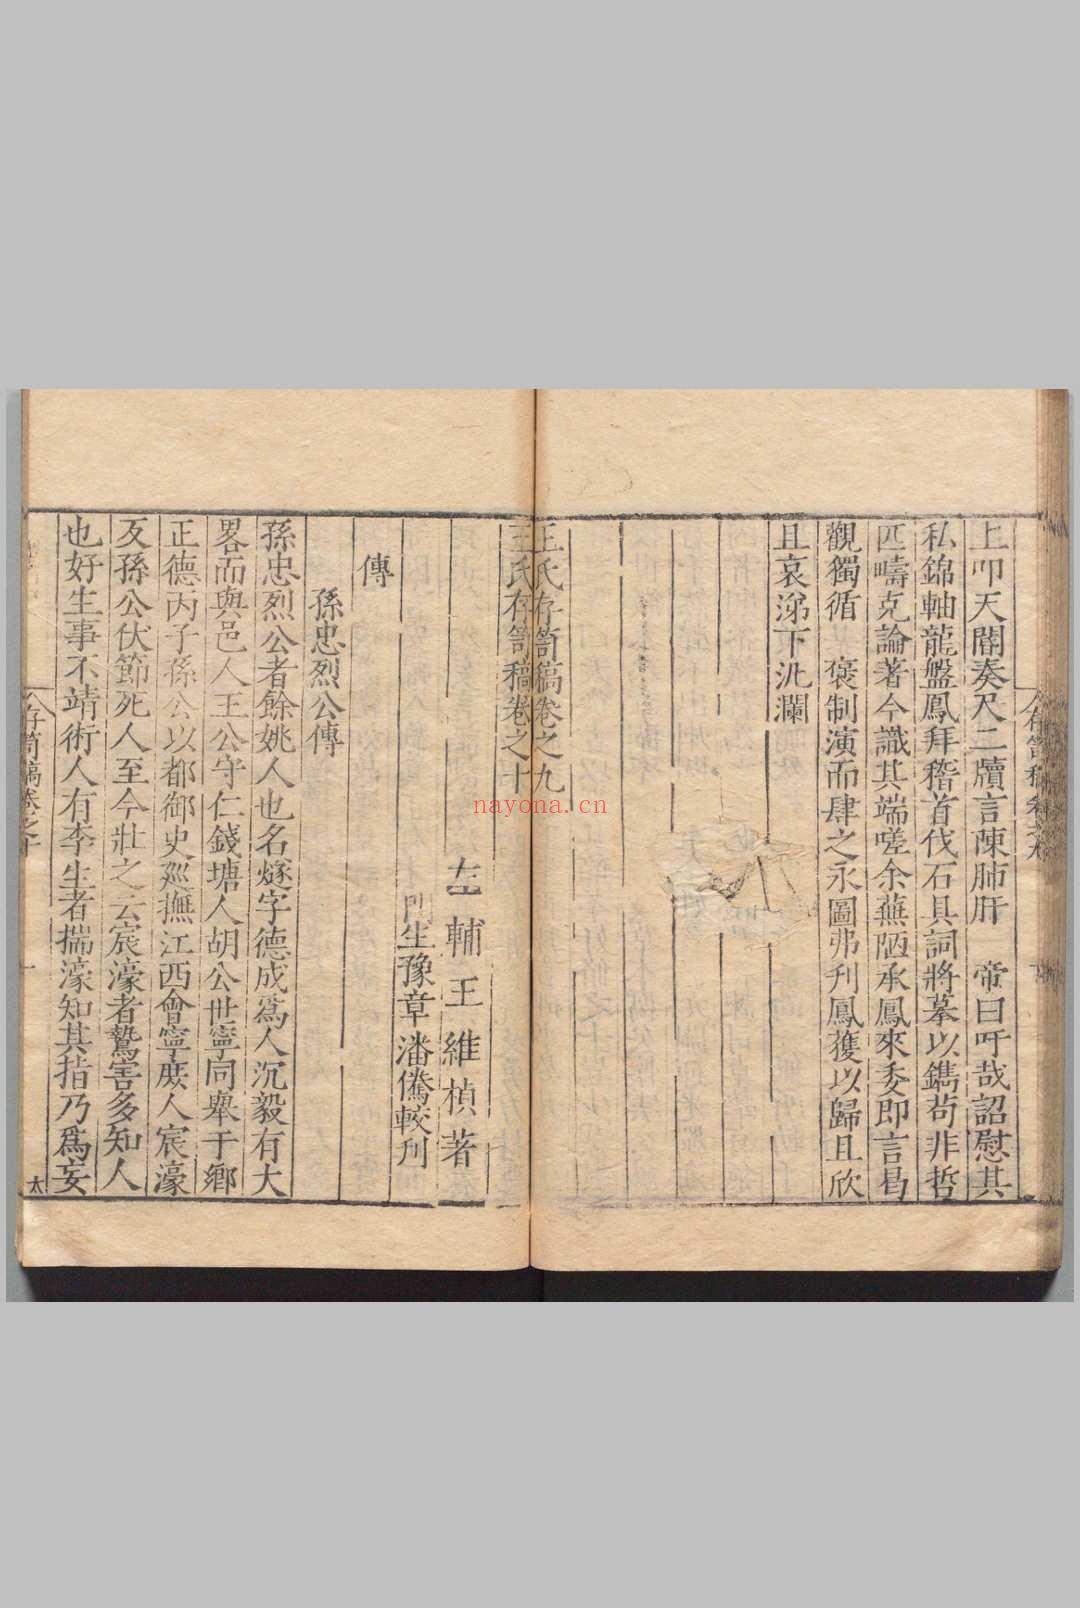 上叩天閽奏尺二牘言陳肺肝　帝曰吁哉詔慰其
私錦軸龍盤鳳拜稽首伐石具詞將摹以鐫苟非哲
匹疇克論著今識其端嗟余蕪陋承鳳來委即言曷
觀獨循　褒制演而肆之永圖弗刋鳳獲以歸且欣
且哀涕下沘瀾
王氏存笥稿卷之九
存笥稿卷之九
王氏存笥稿卷之十
左輔王維楨著
門生豫章潘儁較刋
傳
孫忠烈公傳
孫忠烈公者餘姚人也名燧字德成爲人沉毅有大
畧而與邑人王公守仁錢塘人胡公世寧同舉于鄉
正德丙子孫公以都御史廵撫江西會寧庻人宸濠
反孫公伏節死人至今壯之云宸濠者鷙害多知人
也好生事不靖術人有李生者揣濠知其指乃爲妄
存笥稿卷之十
一
太
nayona.cn